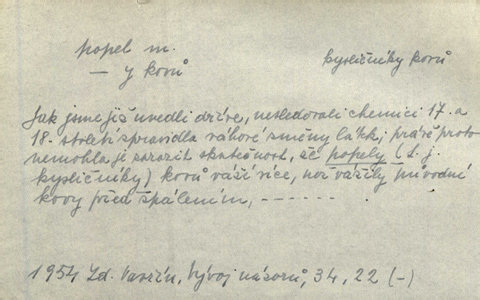 popel m.
— y kovů
kysličníky kovů
Jak jsme již uvedli dříve, nesledovali chemici 17. a
18. století zpravidla váhové změny látek; právě proto
nemohla je zarazit skutečnost, že popely (t. j.
kysličníky) kovů váží více, než vážily původní
kovy před spálením, — — — — — —
1954 Zd. Vavřín, Vývoj názorů, 34, 22 (—)